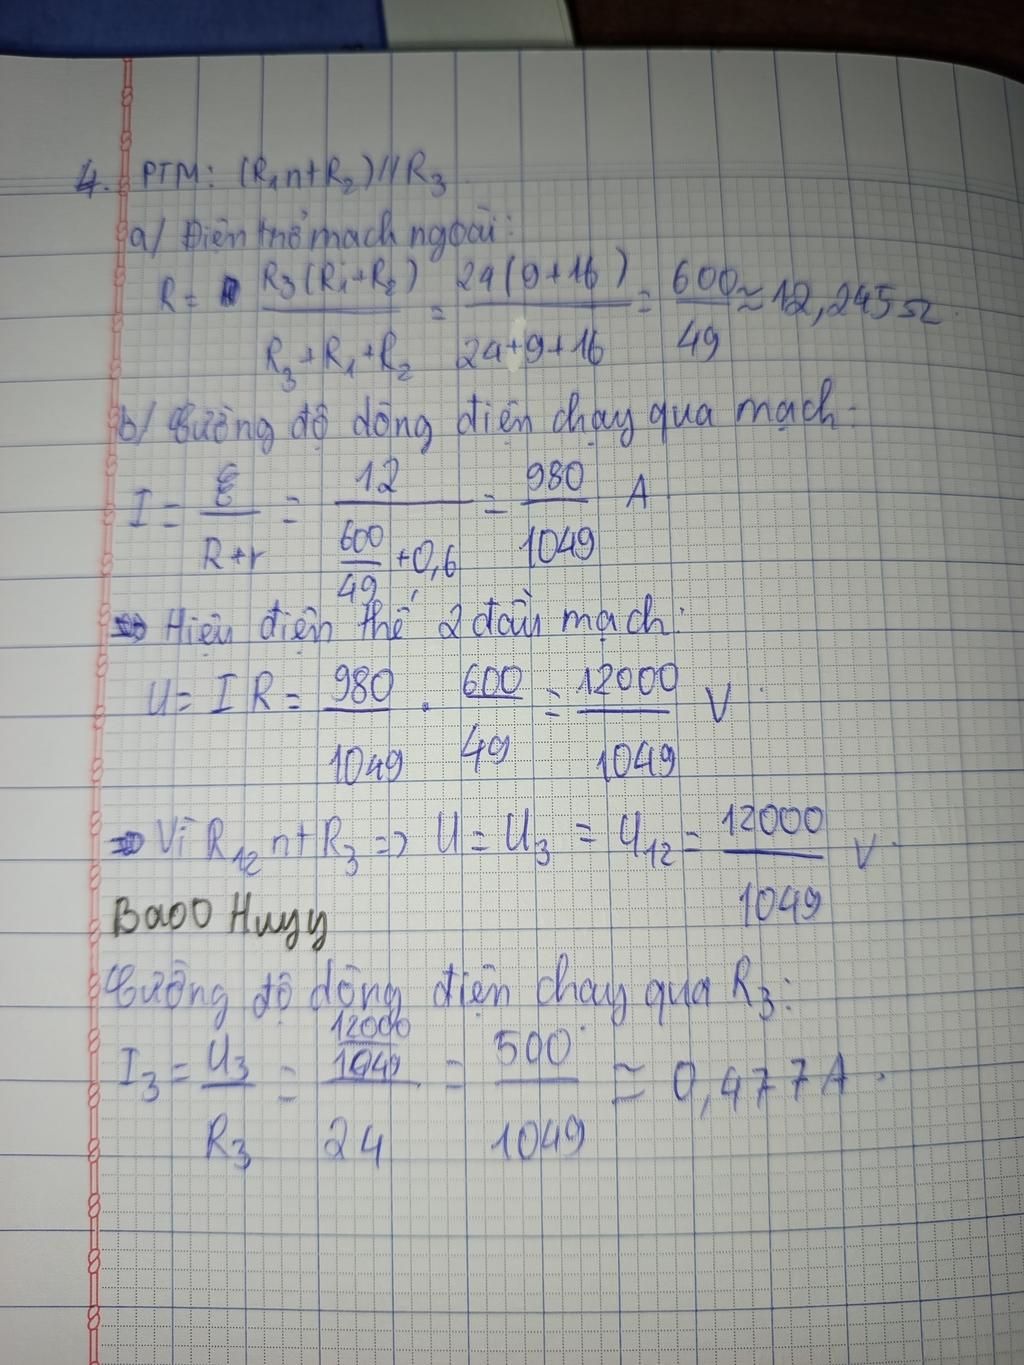 4. PTM: (R₁ nt R₂) // R₃
a/ Điện trở mạch ngoài:
R = R₃(R₁+R₂) / R₃+R₁+R₂ = 24(9+16) / 24+9+16 = 600/49 ≈ 12,245 Ω.
b/ Cường độ dòng điện chạy qua mạch:
I = ξ / R+r = 12 / 600/49 + 0,6 = 980/1049 A
=> Hiệu điện thế 2 đầu mạch:
U = IR = 980/1049 . 600/49 = 12000/1049 V.
=> Vì R₁₂ nt R₃ => U = U₃ = U₁₂ = 12000/1049 V.
Baoo Huyy
Cường độ dòng điện chạy qua R₃:
I₃ = U₃/R₃ = 12000/1049 / 24 = 500/1049 ≈ 0,477A.